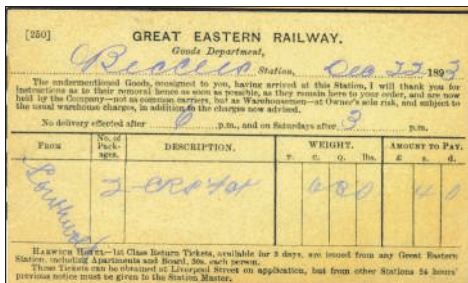 [250] GREAT EASTERN RAILWAY.
Goods Department,
Beccles Station, Dec 22 1893
The undermentioned Goods, consigned to you, having arrived at this Station, I will thank you for
instructions as to their removal hence as soon as possible, as they remain here to your order, and are now
held by the Company—not as common carriers, but as Warehousemen—at Owner's sole risk, and subject to
the usual warehouse charges, in addition to the charges now advised.
No delivery effected after 6 p.m., and on Saturdays after 3 p.m.
FROM No. of Packages. DESCRIPTION. WEIGHT. AMOUNT TO PAY.
T. C. Q. lbs. £ s. d.
2 4 0
HARWICH HOTEL—1st Class Return Tickets, available for 3 days, are issued from any Great Eastern
Station, including Apartments and Board, 30s. each person.
These Tickets can be obtained at Liverpool Street on application, but from other Stations 24 hours'
previous notice must be given to the Station Master.